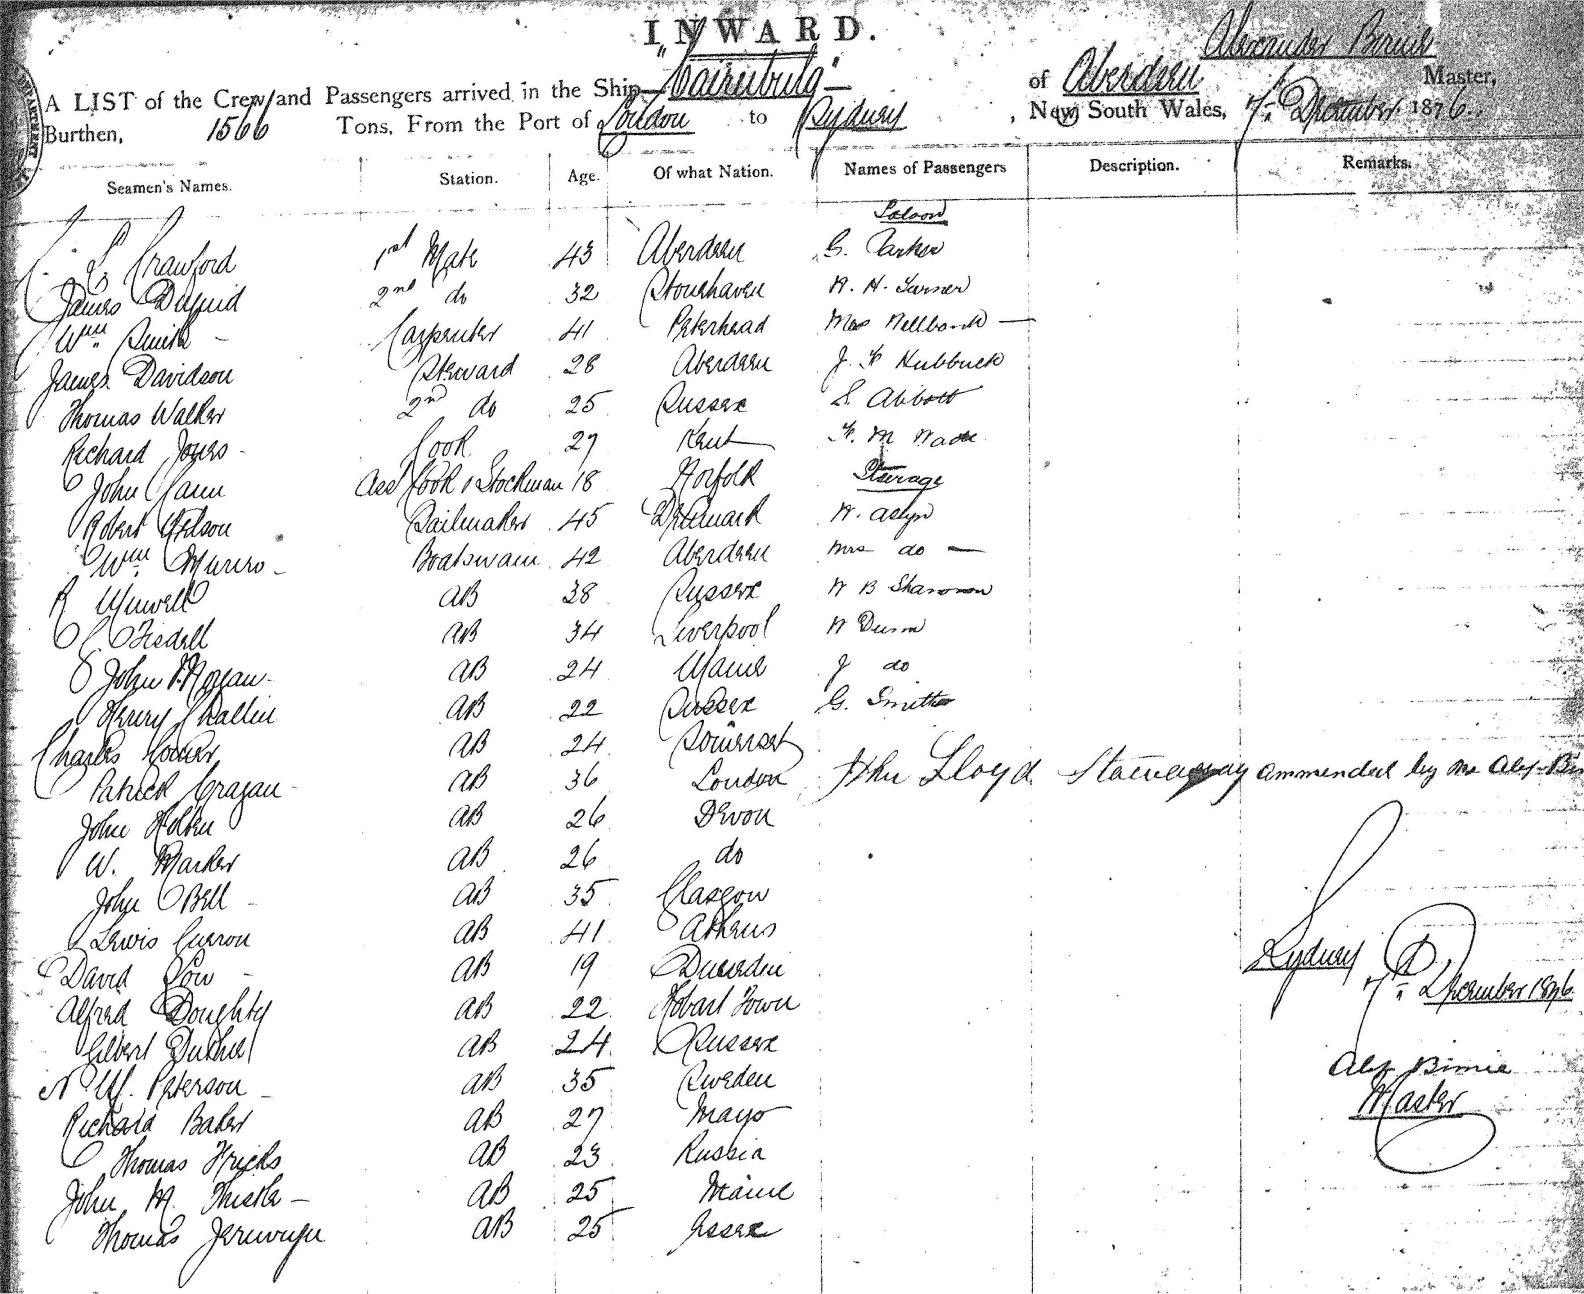 INWARD.
Alexander Birnie
A LIST of the Crew and Passengers arrived in the Ship "Cairnbulg" of Aberdeen Master,
Burthen, 1566 Tons, From the Port of London to Sydney, New South Wales, 7th December 1876.
Seamen's Names. Station. Age. Of what Nation. Names of Passengers Description. Remarks.
Saloon
L Crawford 1st Mate 43 Aberdeen G. Parker
James Duguid 2nd do 32 Stonehaven R. H. Turner
Wm Smith - Carpenter 41 Peterhead Mrs Wellbank —
James Davidson Steward 28 Aberdeen J. F Hubbuck
Thomas Walker 2nd do 25 Sussex S. Abbott
Richard Jones - Cook 27 Kent F. M Wade
John Cann Asst Cook & Stockman 18 Norfolk Steerage
Robert Wilson Sailmaker 45 Denmark W.
Wm Munro - Boatswain 42 Aberdeen Mrs do —
R AB 38 Sussex W B Shannon
C Tisdell AB 34 Liverpool W Dunn
John Morgan - AB 24 Maine J do
Henry Challin AB 22 Sussex G. Smithe
Charles AB 24 Somerset
Patrick Cragan - AB 36 London John Lloyd Stowaway ammended by me Alex Bir
John Holten AB 26 Devon
W. Marker AB 26 do
John Bell - AB 35 Glasgow
Lewis AB 41 Athens
David Low - AB 19 Dundee
Alfred Doughty AB 22 Hobart Town
Gilbert Duthie AB 24 Sussex
N M. Peterson - AB 35 Sweden
Richard Baker AB 27 Mayo
Thomas Fricks AB 23 Russia
John M. Thistle - AB 25 Maine
Thomas AB 25 Essex
Sydney
7th December 1876
Alex Birnie
Master